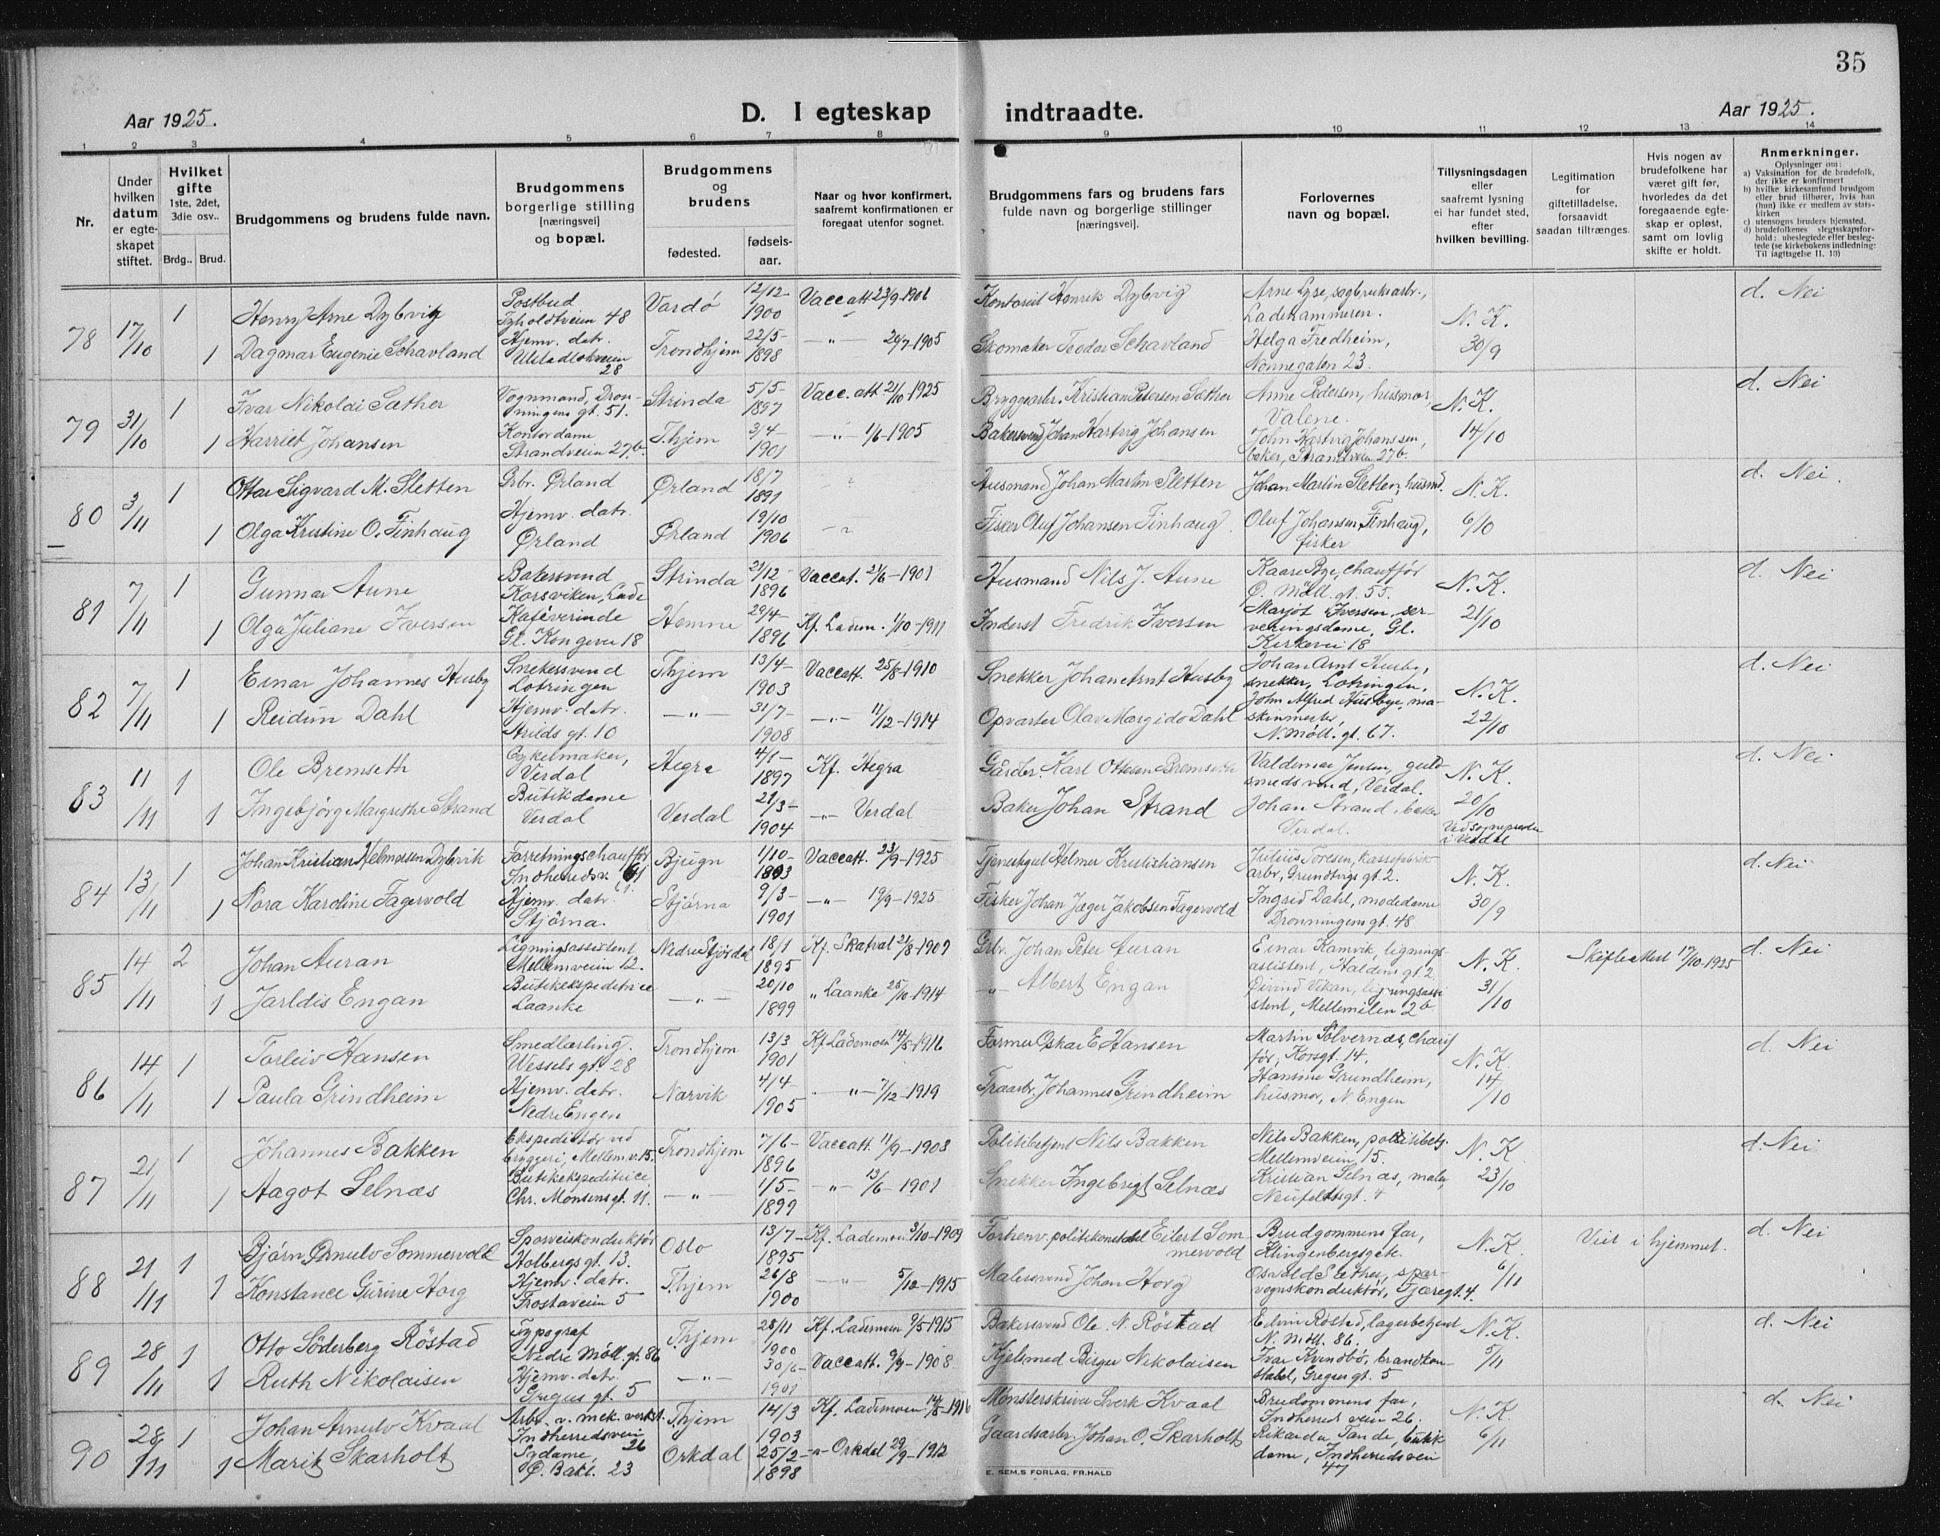 35
Aar 1925.
D. I egteskap indtraadte.
Aar 1925.
1 2 3 4 5 6 7 8 9 10 11 12 13 14
Nr.
Under hvilken datum er egteskapet stiftet.
Hvilket gifte 1ste, 2det, 3die osv..
Brdg.. Brud.
Brudgommens og brudens fulde navn.
Brudgommens borgerlige stilling [næringsvei] og bopæl.
Brudgommens og brudens
fødested. fødsels-aar.
Naar og hvor konfirmert, saafremt konfirmationen er foregaat utenfor sognet.
Brudgommens fars og brudens fars fulde navn og borgerlige stillinger [næringsvei].
Forlovernes navn og bopæl.
Tillysningsdagen eller saafremt lysning ei har fundet sted, efter hvilken bevilling.
Legitimation for giftetilladelse, forsaavidt saadan tiltrænges.
Hvis nogen av brudefolkene har været gift før, hvorledes da det foregaaende egteskap er opløst, samt om lovlig skifte er holdt.
Anmerkninger.
Oplysninger om:
a) Vaksination for de brudefolk, der ikke er konfirmert
b) hvilke kirkesamfund brudgom eller brud tilhører, hvis han (hun) ikke er medlem av statskirken
c) utensogns bruders hjemsted.
d) brudefolkenes slegtsskapsforhold; ubeslegtede eller beslegtede (se kirkebokens indledning: Til iagttagelse II. 10)
78 17/10 1 Henry Arne Dybvig Postbud Tyholdtveien 48 Vardø 12/12-1900 Vaccatt 23/9-1901 Kontorist Henrik Dybvig Arne Lyse, sagbruksarb., Ladehammeren. N. K. 30/9 d. Nei
1 Dagmar Eugenie Schavland Hjemv. datr. Ulstadløkveien 28 Trondhjem 22/5-1898 -"- 20/7-1905 Skomaker Teodor Schavland Helga Fredheim, Nonnegaten 23.
79 31/10 1 Ivar Nikolai Sæther Vognmand, Dronningens gt. 51. Strinda 5/5-1897 Vacc.att 21/10 1925 Bryggearb. Kristian Petersen Sæther Anne Pedersen, husmor, Valene. N. K. 14/10 d. Nei
1 Harriet Johansen Kontordame Strandveien 27b. Thjem 3/4-1901 -"- 1/6-1905 Bakersvend Johan Hartvig Johansen John Hartvig Johanssen, baker, Strandveien 27b.
80 3/11 1 Ottar Sigvard M. Sletten Grbr. Ørland Ørland 18/7 1899 " Husmand Johan Martin Sletten Johan Martin Sletten, husmd. N. K. 6/10 d. Nei.
1 Olga Kristine O. Finhaug Hjemv. datr. Ørland Ørland 19/10 1906 -"- Fisker Oluf Johansen Finhaug. Oluf Johansen Finhaug, fisker
81 7/11 1 Gunnar Aune Bakersvend Korsviken, Lade Strinda 21/12-1896 Vaccat. 21/6-1901 Husmand Nils J. Aune Kaare Bye, chauffør Ø. Møll. gt. 55. N. K. 21/10 d. Nei
1 Olga Juliane Iversen Kaféverinde Gl. Kongevei 18 Hemne 29/4-1896 Kf. Ladem. 1/10-1911 Inderst Fredrik Iversen Marjot Iversen, serveringsdame, Gl. Kirkevei 18
82 7/11 1 Einar Johannes Husby Snekersvend Lotringen Thjem 13/4-1903 Vaccatt. 25/8-1910 Snekker Johan Arnt Husby Johan Arnt Husby, snekker, Lotringen. N. K. 22/10 d. Nei
1 Reidun Dahl Hjemv. datr. Strilds gt. 10 -"- 31/7-1908 -"- 11/12-1914 Opvarter Olav Margido Dahl John Alfred Husbye, maskinmester, N. Møll. gt. 67.
83 11/11 1 Ole Bremseth Cykelmaker, Verdal Hegra 4/1-1897 Kf. Hegra Gårdbr. Karl Ottesen Bremseth Valdemar Jensen, guldsmedsvend, Verdal. N. K. 20/10 d. Nei
1 Ingebjørg Margrethe Strand Butikdame Verdal Verdal 21/3-1904 -"- Verdal Baker Johan Strand Johan Strand, baker Verdal. Ved sognepresten i Verdal
84 13/11 1 Johan Kristian Helmersen Dybvik Forretningschauffør Indherredsv. 61 Bjugn 1/10-1893 Vaccatt. 23/9-1925 Tjenestgut Helmer Kristiansen Julius Toresen, kassefabrikarbr, Grundtvigs gt. 2. N. K. 30/9 d. Nei
1 Nora Karoline Fagervold Hjemv. datr. Stjørna. Stjørna 9/3-1901 -"- 19/9-1925 Fisker Johan Jæger Jakobsen Fagervold Ingrid Dahl, modedame Dronningens gt. 48
85 14/11 2 Johan Auran Ligningsassistent Mellemveien 12. Nedre Stjørdal 18/1 1895 Kf. Skatval 21/8-1909 Grbr. Johan Peter Auran Einar Ramvik, ligningsassistent, Haldens gt. 2 N. K. 31/10 Skifteattest 17/10-1925 d. Nei
1 Jarldis Engan Butikekspeditrice Laanke -"- 20/10 1899 " Laanke 25/10-1914 -"- Albert Engan Øivind Vikan, ligningsassistent, Mellemilen 2b
86 14/11 1 Torleiv Hansen Smedlærling. Wessels gt. 28 Trondhjem 13/3 1901 Kf. Lademoen 14/5-1916 Former Oskar E Hansen Martin Sølvernes, chauffør, Korsgt. 14. N. K. 14/10 d. Nei
1 Paula Grindheim Hjemv. datr. Nedre Engen Narvik 4/4 1905 -"- 7/12-1919 Træarbr. Johannes Grindheim Hansine Grundheim, husmor, N. Engen
87 21/11 1 Johannes Bakken Ekspeditør ved bryggeri, Mellemv. 15. Trondhjem 7/6-1896 Vaccatt. 11/9-1908 Politibetjent Nils Bakken Nils Bakken, politibetj. Mellemveien 15. N. K. 23/10 d. Nei
1 Aagot Selnæs Butikekspeditrice, Chr. Monsens gt. 11. -"- 1/5-1899 -"- 13/6-1901 Snekker Ingebrigt Selnæs Kristian Selnæs, maler, Neufeldtsgt. 4
88 21/11 1 Bjørn Ørnulv Sommervold Sporveiskonduktør Holbergs gt. 13. Oslo 13/7-1895 Kf. Lademoen 3/10-1909 Forhenv. politikonstabel Eilert Sommervold Brudgommens far, Klingenbergsgate. N. K. 6/11 Viet i hjemmet. d. Nei
1 Konstance Gurine Horg Hjemv. datr. Frostaveien 5 Thjem 26/8 1900 -"- 5/12-1915 Malersvend Johan Horg Osvald Slether, sporvegnskonduktør, Tjæregt. 4.
89 28/11 1 Otto Söderberg Röstad Typograf Nedre Møll. gt. 86 Thjem 28/11 1900 Kf. Lademoen 9/5-1915 Bakersvend Ole N. Röstad Edvin Röstad, lagerbetjent N. Møll. 86. N. K. 5/11 d. Nei
1 Ruth Nikolaisen Hjemv. datr. Gregus gt. 5 -"- 30/6-1901 Vaccatt. 9/9-1908. Hjelsmed Birger Nikolaisen Ivar Kvindbö, brandkonstabel, Gregus gt. 5
90 28/11 1 Johan Arnulv Kvaal Arbr. v. mek. verkst. Indherredsveien 26 Thjem 14/3 1903 Kf. Lademoen 14/5-1916 Mønsterskriver Sverk Kvaal Brudommens far, Indherreds veien 26. N. K. 6/11 d. Nei
1 Marit Skarholt Sydame, Ø. Bakl. 23 Orkdal 25/2-1898 -"- Orkdal 29/9-1912 Gaardsarbr. Johan O. Skarholt Rikarda Tande, butikdame, Indherredsveien 47
E. SEM.S FORLAG, FR.HALD